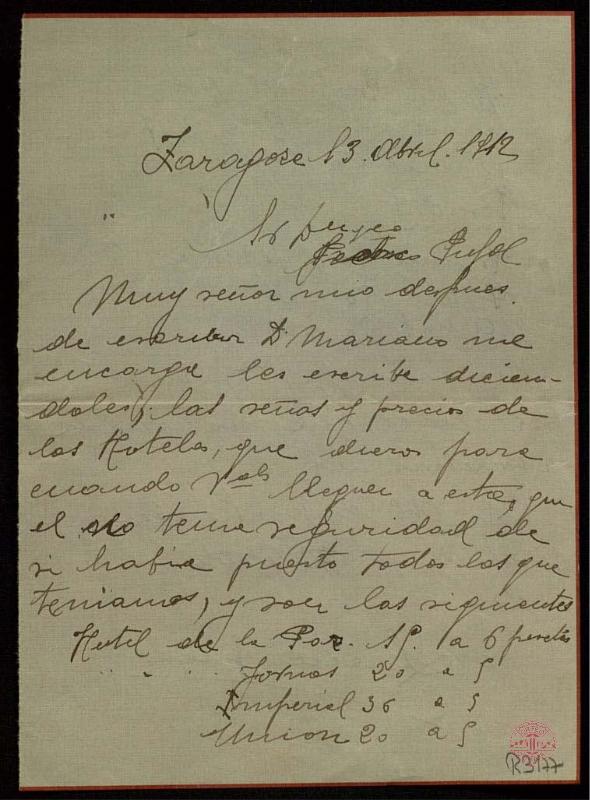 Zaragoza 13. Abril. 1912
Sr
Pujol
Muy señor mio despues
de escribir D Mariano me
encarga les escribe dicien-
doles, las señas y precios de
los Hoteles, que dieros para
cuando Vds lleguen a esta, que
el no tenia seguridad de
si habia puesto todos los que
teniamos, y son las siguientes
Hotel de la Paz. a 6 pesetas
" " Fornos 20 a 5
Imperial 36 a 5
Union 20 a 5
R3177